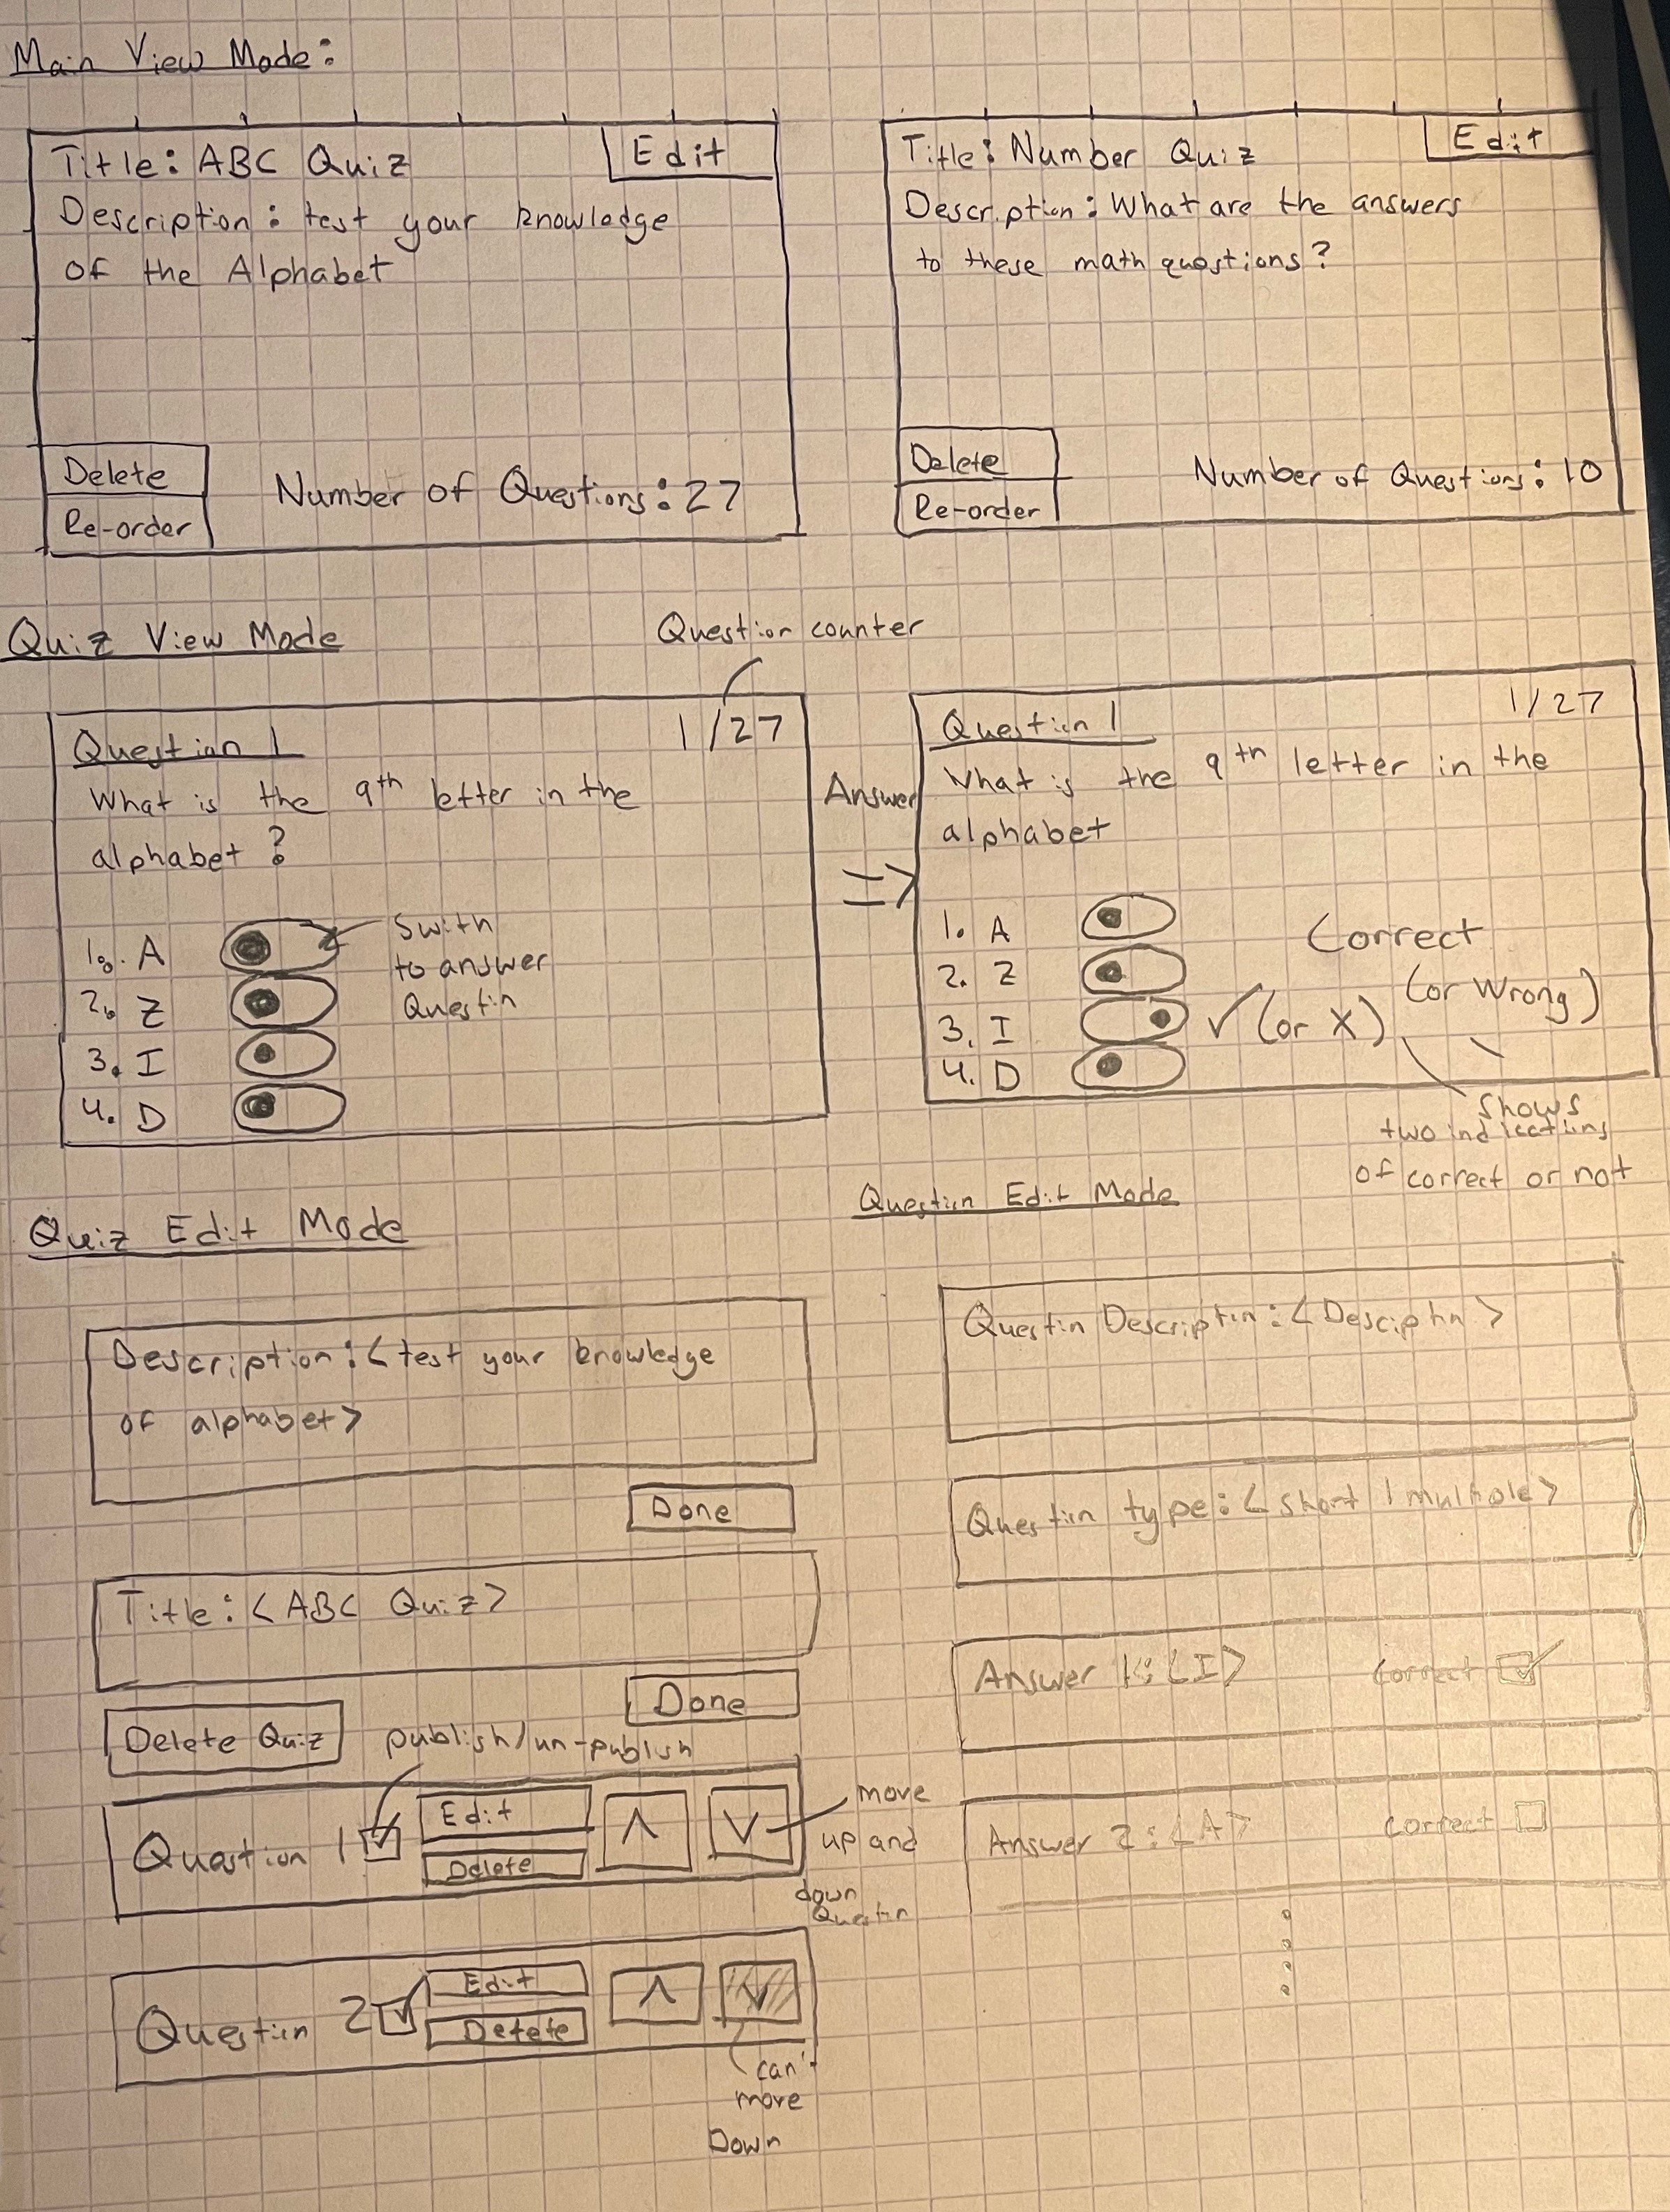 Main View Mode:
Title: ABC Quiz
Edit
Description: test your knowledge
of the Alphabet
Delete
Re-order
Number of Questions: 27
Title: Number Quiz
Edit
Description: What are the answers
to these math questions?
Delete
Re-order
Number of Questions: 10
Quiz View Mode
Question counter
Question 1
1/27
What is the 9th letter in the
alphabet?
1. A
2. Z
3. I
4. D
Swith
to answer
Questin
Answer
=>
Question 1
1/27
What is the 9th letter in the
alphabet
1. A
2. Z
3. I
4. D
✓ (or X)
Correct
(or Wrong)
Shows
two indications
of correct or not
Quiz Edit Mode
Description: <test your knowledge
of alphabet>
Done
Title: <ABC Quiz>
Done
Delete Quiz
publish/un-publish
Question 1
Edit
Delete
move
up and
down
Questin
Question 2
Edit
Delete
can't
move
Down
Question Edit Mode
Questin Descriptin: <Desciptin>
Questin type: <short | multiple>
Answer 1: <I>
correct
Answer 2: <A>
correct